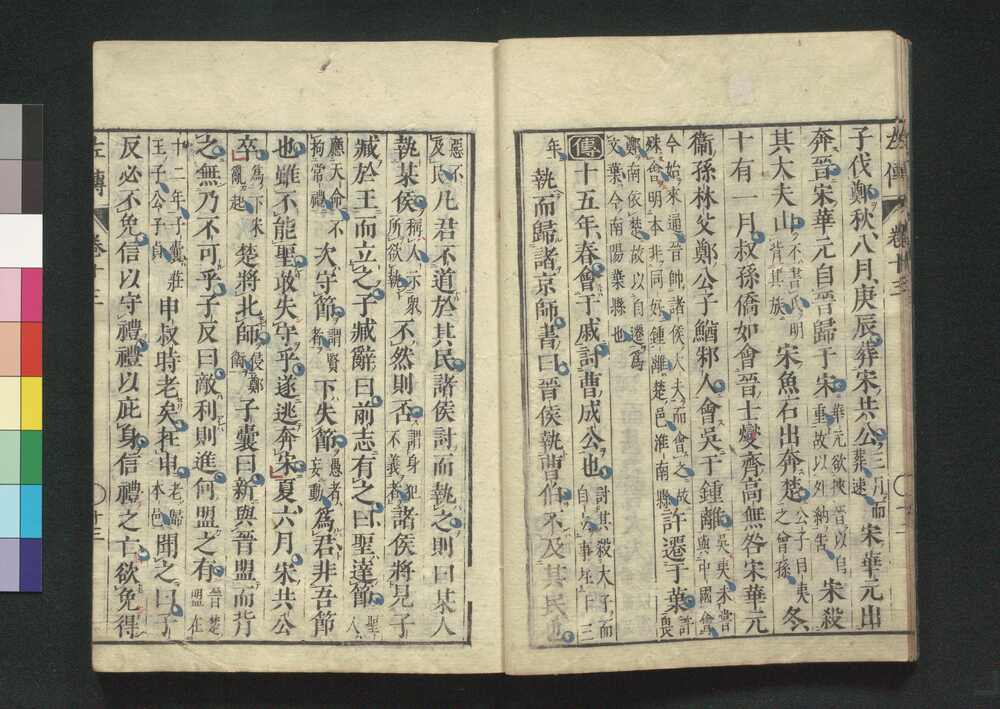 子伐鄭秋八月庚辰葬宋共公三月而葬速宋華元出
奔晉宋華元自晉歸于宋華元欲挾晉以自重故以外納告宋殺
其大夫山不書氏明背其族宋魚石出奔楚公子目夷之曾孫冬
十有一月叔孫僑如會晉士燮齊高無咎宋華元
衛孫林父鄭公子鰌邾人會吳于鍾離吳夷未嘗與中國會
今始來通晉帥諸侯大夫而會之故殊會明本非同好鍾離楚邑淮南縣許遷于葉許畏
鄭南依楚故以自遷為文葉今南陽葉縣也
傳十五年春會于戚討曹成公也討其殺大子而自立事在十三
年執而歸諸京師書曰晉侯執曹伯不及其民也
惡不及民凡君不道於其民諸侯討而執之則曰某人
執某侯稱人示衆所欲執不然則否謂身犯不義者諸侯將見子
臧於王而立之子臧辭曰前志有之曰聖達節聖人
應天命不拘常禮次守節謂賢者下失節愚者妄動為君非吾節
也雖不能聖敢失守乎遂逃奔宋夏六月宋共公
卒為下宋亂起楚將北師侵鄭衛子囊曰新與晉盟而背
之無乃不可乎子反曰敵利則進何盟之有晉楚盟在
十二年子囊莊王子公子貞申叔時老矣在申老歸本邑聞之曰子
反必不免信以守禮禮以庇身信禮之亡欲免得
左傳
卷十三
十三